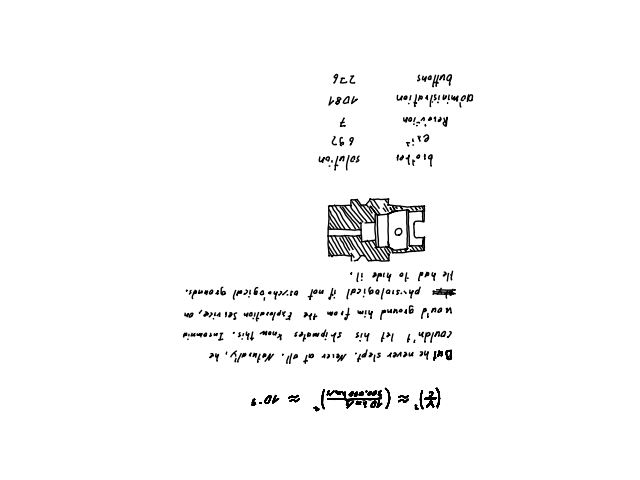 (v/c)² ≈ (10 km/s / 300.000 km/s)² ≈ 10⁻⁹
But he never slept. Never at all. Naturally, he
couldn't let his shipmates know this. Insomnia
would ground him from the Exploration Service, on
physiological if not psychological grounds.
He had to hide it.
brother solution
exit 692
Relation 7
administration 1081
buttons 276